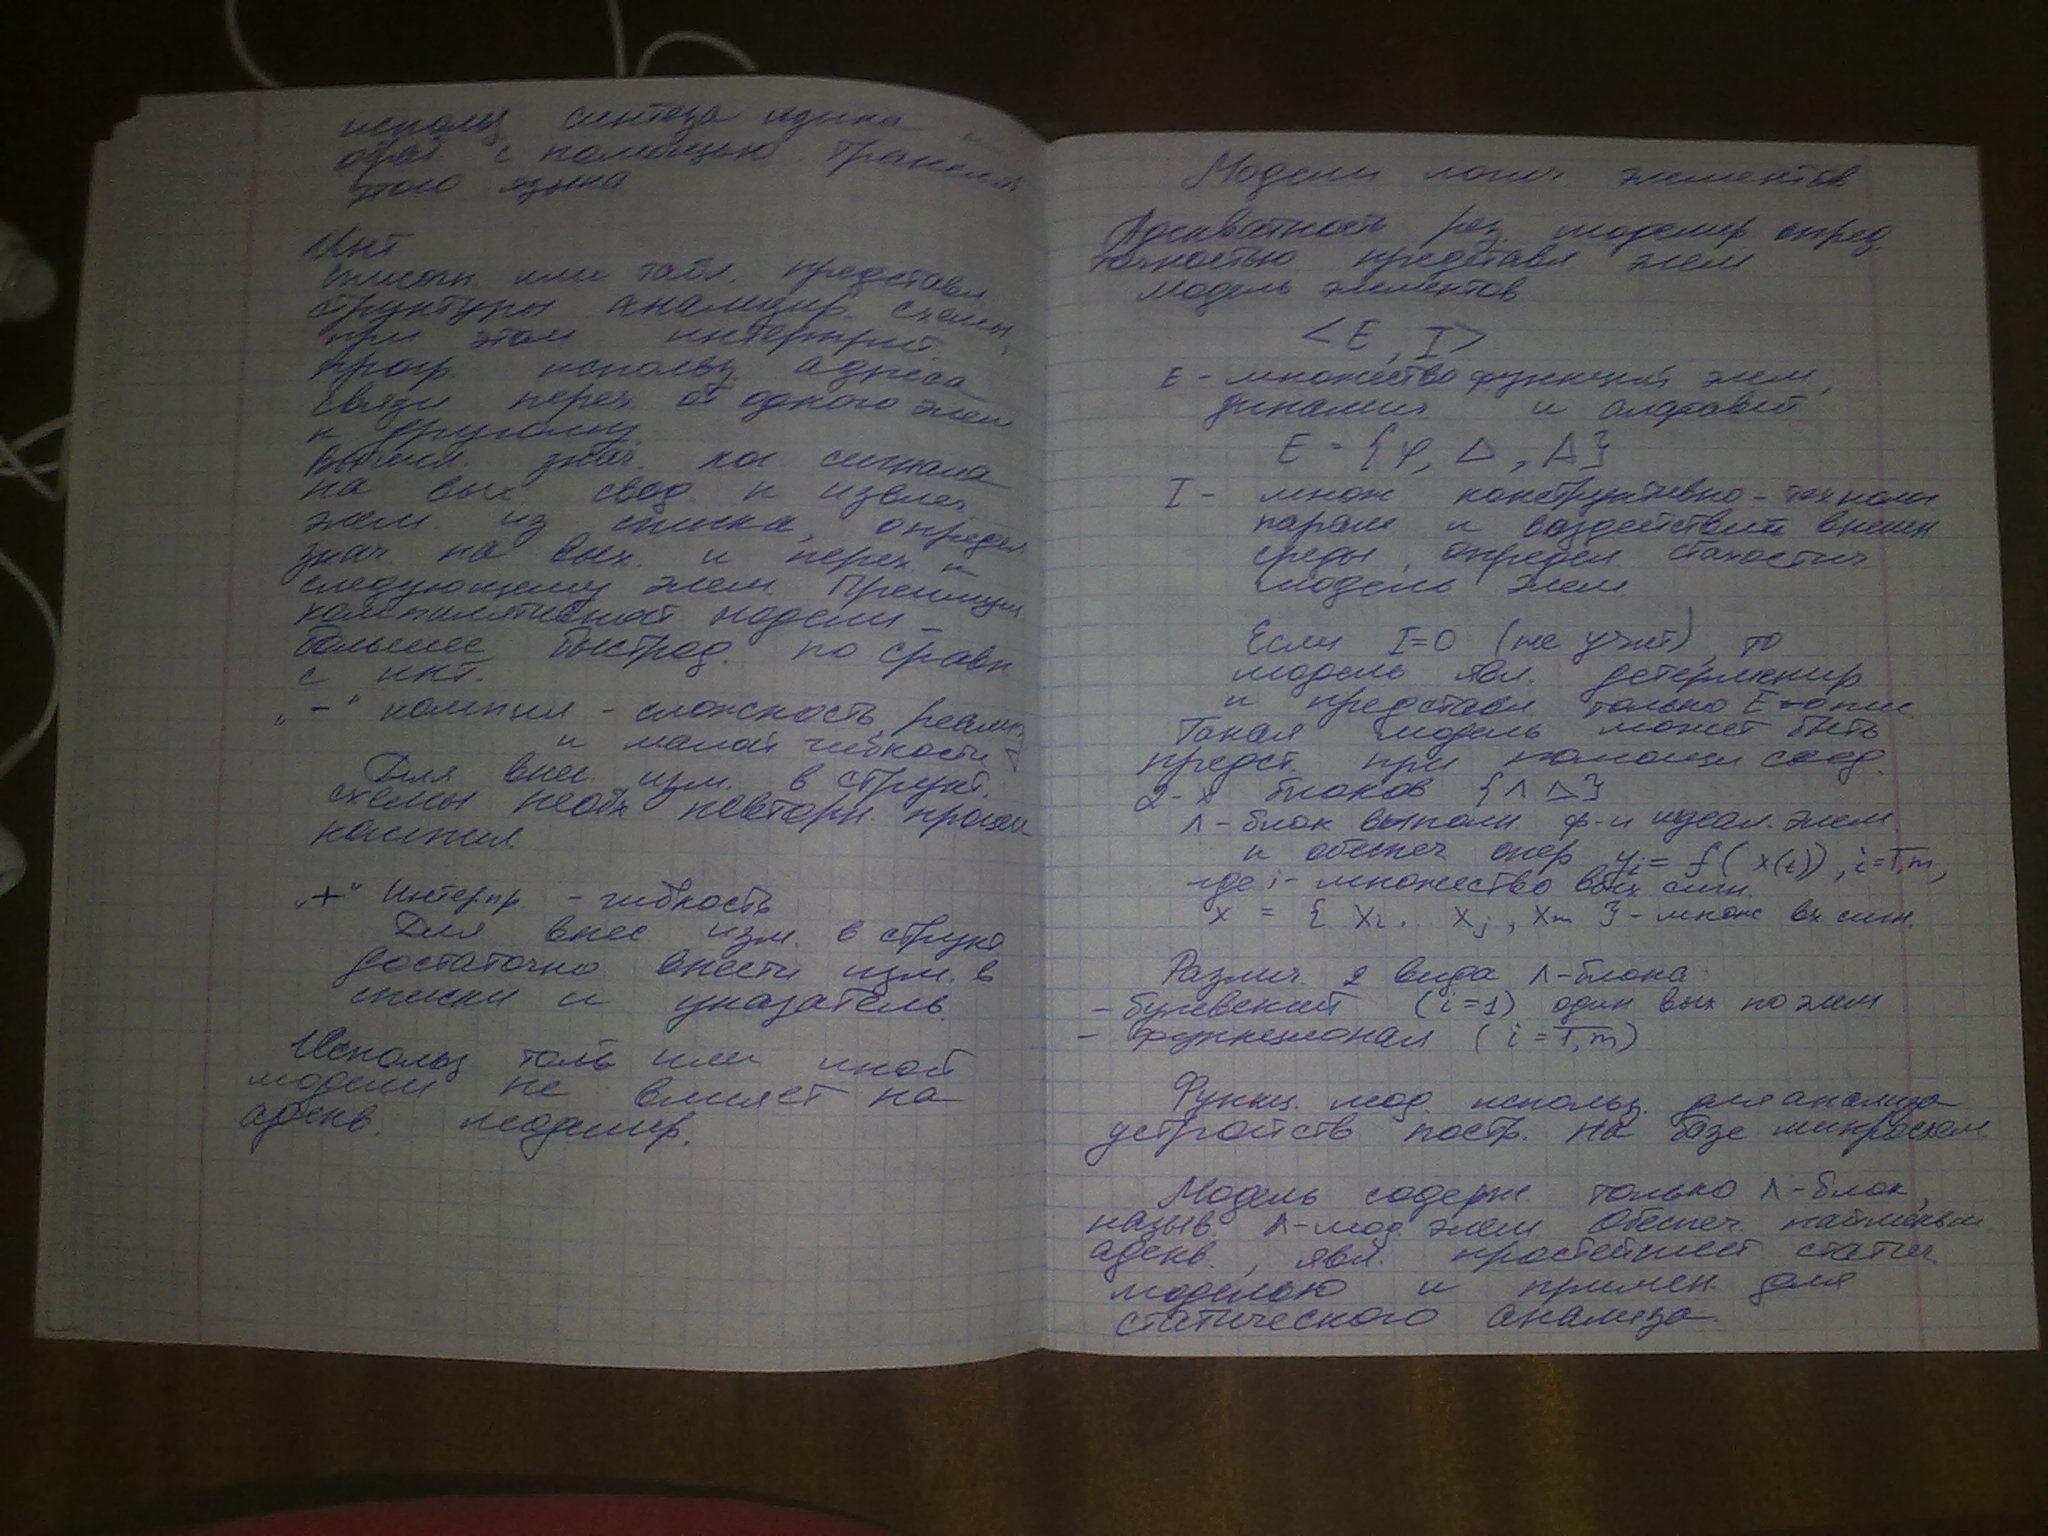 использ синтеза языка
с помощью транслят
этого языка
Инт
списоч. или табл. представл
структуры анализир. схемы,
при этом интерпрет.
прогр. использ. адреса
связи перех от одного элем
к другому.
Вычисл. знач. лог сигнала
на вых. свод. к извлеч.
элем. из списка, определ
знач на вых. и перех к
следующему элем. Преимущ.
компилятивной модели –
большее быстрод. по сравн.
с инт.
„–" компил – сложность реализ
и малой гибкости
Для внес. изм. в структ.
схемы необх повторн. процесс
компил.
„+" Интерпр. – гибкость
Для внес. изм. в структ
достаточно внести изм. в
списки и указатель.
Использ той или иной
модели не влияет на
адекв. моделир.
Модели логич. элементов
Адекватность рез. моделир опред.
точностью представл элем
Модель элементов
<E, I>
E – множество функций элем,
динамич и алфавит
E = {φ, Δ, A}
I – множ конструктивно-технолог
парам и воздействий внешн
среды, определ стохастич
модель элем.
Если I=0 (не учит), то
модель явл. детерменир
и представл только E-опис.
Такая модель может быть
предст. при помощи соед.
2-х блоков {Λ Δ}
Λ – блок выполн. ф-и идеал. элем
и обеспеч. опер yi = f(x(t)), i=1,m,
где i – множество вых сигн.
x = { xi. xj, xm } – множ вх сигн.
Различ. 2 вида Λ-блока.
– булевский (i=1) один вых по элем
– функционал (i=1,m)
Функц. мод. использ. для анализа
устройств постр. на базе микросхем
Модель содерж. только Λ-блок,
назыв. Λ-мод. элем. Обеспеч. наименьш
адекв., явл. простейшей статич.
моделью и примен. для
статического анализа.